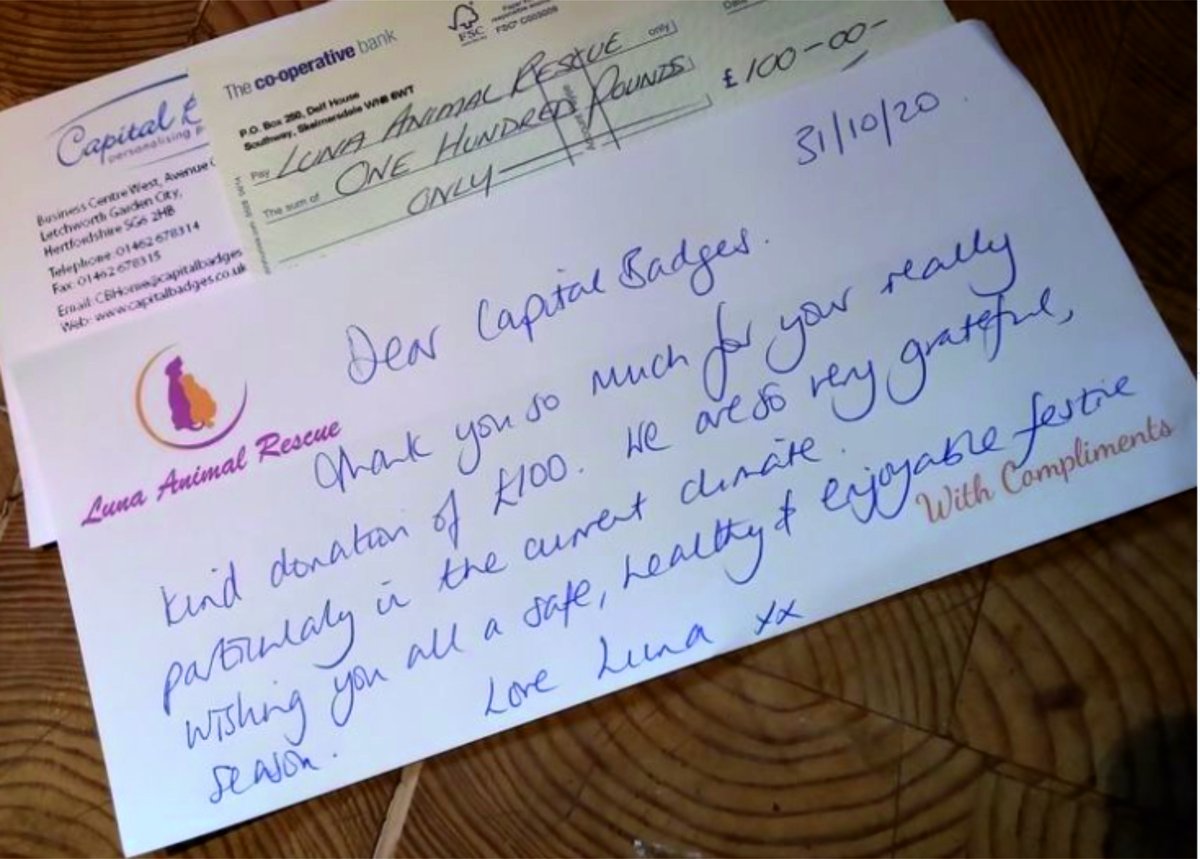 Capital
personalising
Business Centre West, Avenue
Letchworth Garden City,
Hertfordshire SG6 2HB
Telephone: 01462 678314
Fax: 01462 678315
Email: CBHome@capitalbadges
Web: www.capitalbadges.co.uk
The co-operative bank
FSC
P.O. Box 250, Delf House
Southway, Skelmersdale WN8 6WT
Pay LUNA ANIMAL RESCUE only
The sum of ONE HUNDRED POUNDS
ONLY
£ 100-00-
31/10/20
Dear Capital Badges.
Thank you so much for your really
kind donation of £100. We are so very grateful,
particularly in the current climate.
Wishing you all a safe, healthy & enjoyable festive
season.
Love Luna xx
Luna Animal Rescue
With Compliments